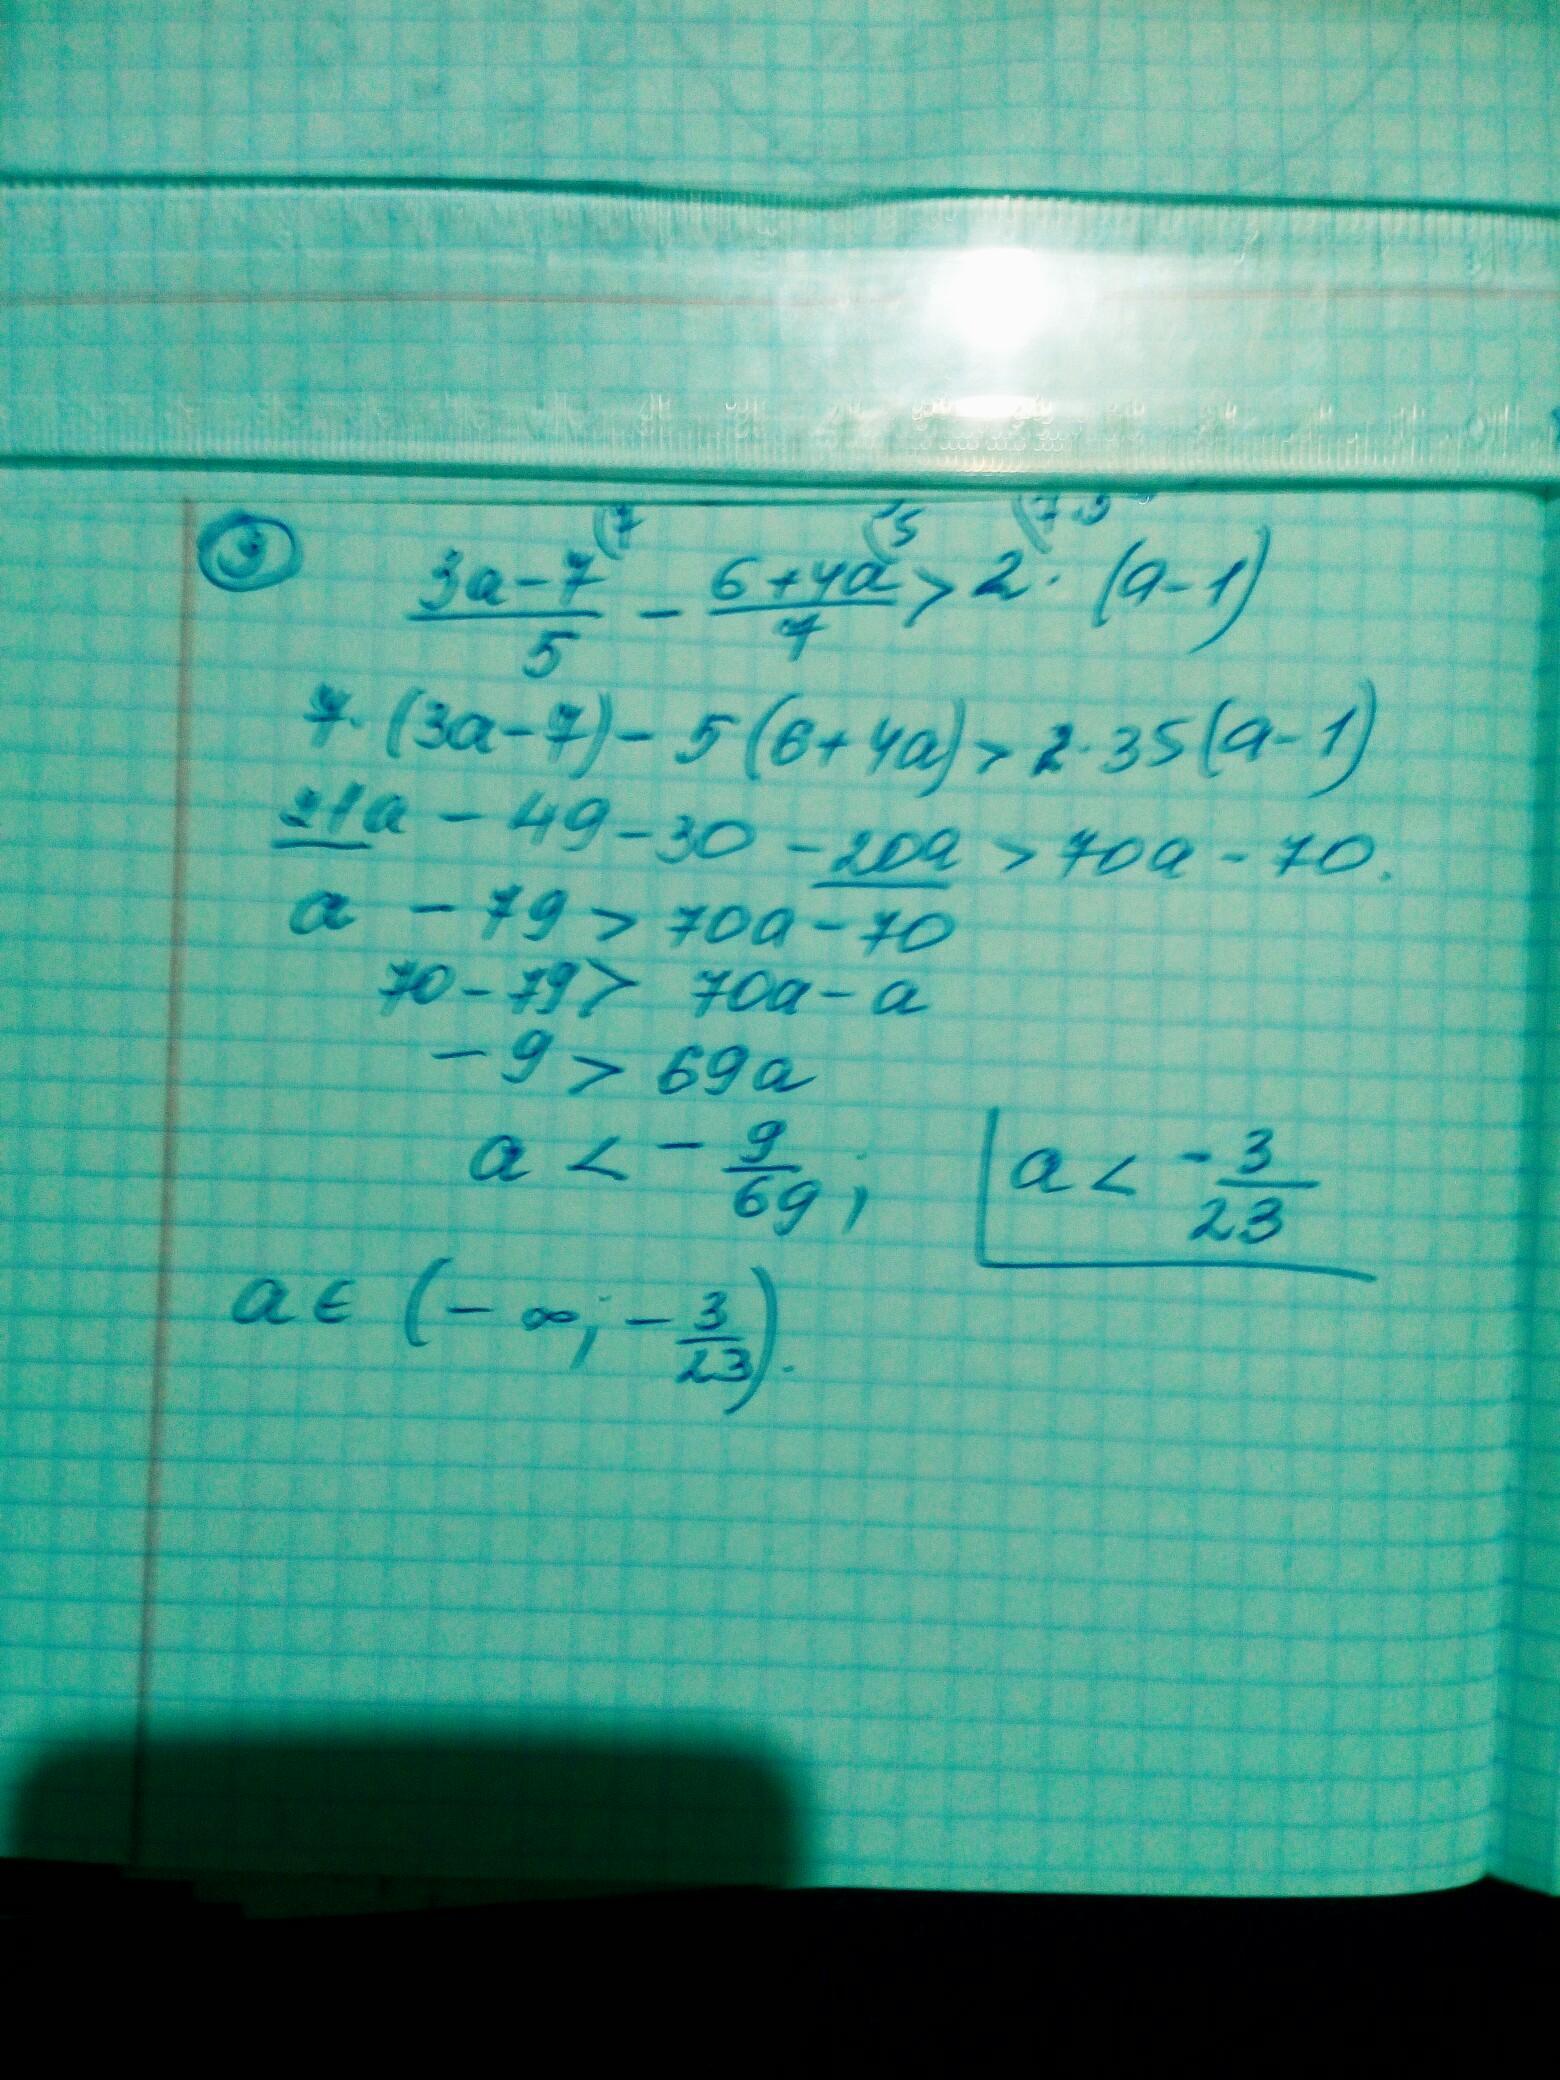 3
(7 (5 (7·5
3a-7/5 - 6+4a/7 > 2·(a-1)
7·(3a-7)-5(6+4a)>2·35(a-1)
21a-49-30-20a>70a-70.
a -79>70a-70
70-79>70a-a
-9>69a
a<-9/69; a<-3/23
a∈(-∞;-3/23).